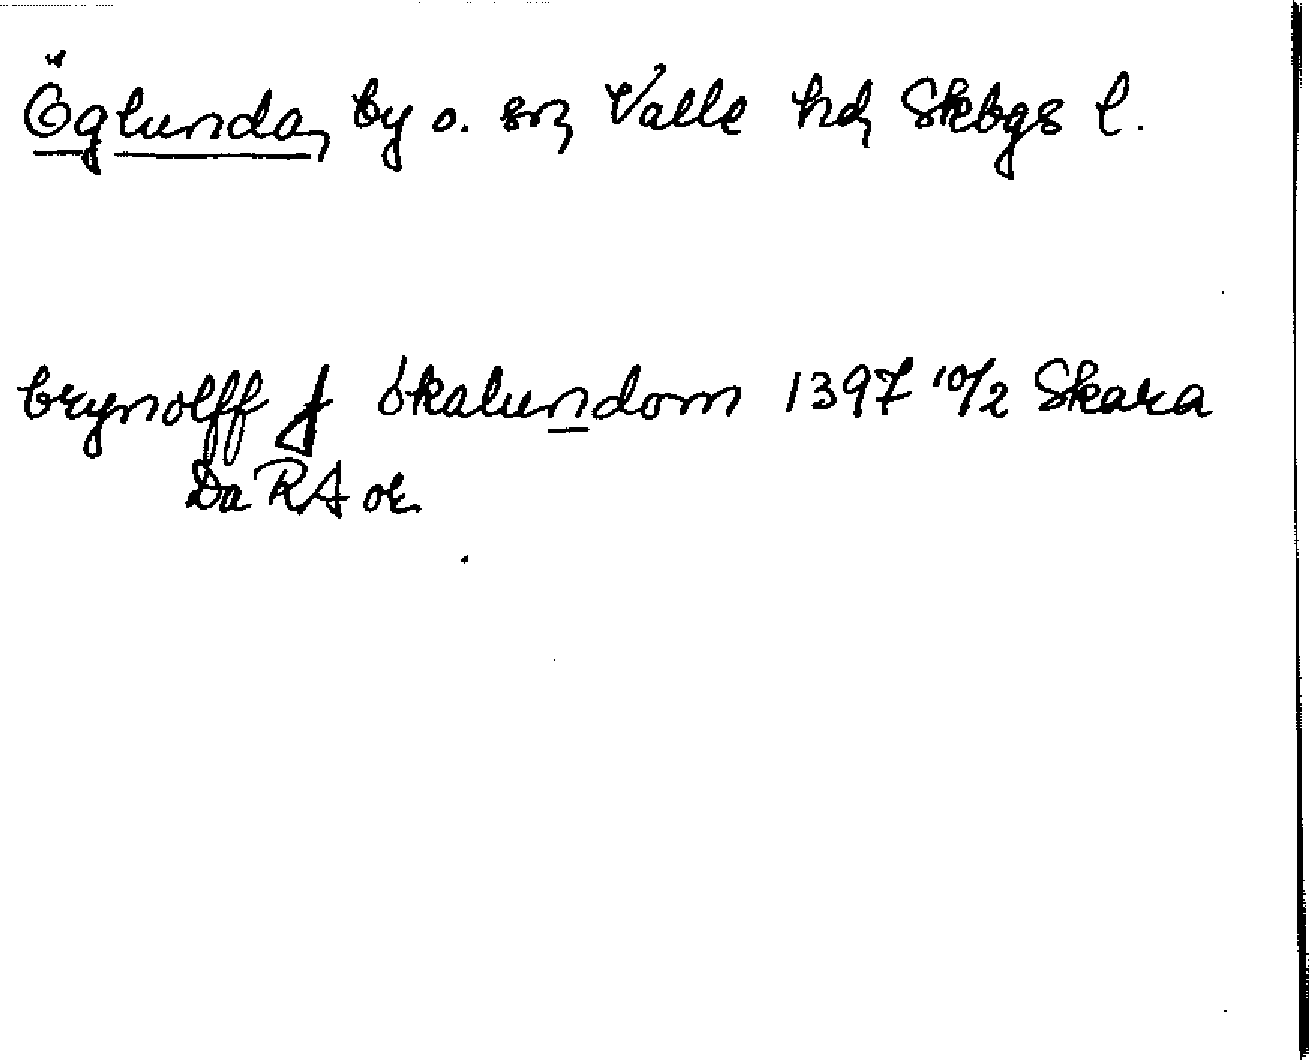 Öglunda, by o. sn, Valle hd, Skbgs l.
brynolff j ökalundom 1397 10/2 Skara
Da RA or.